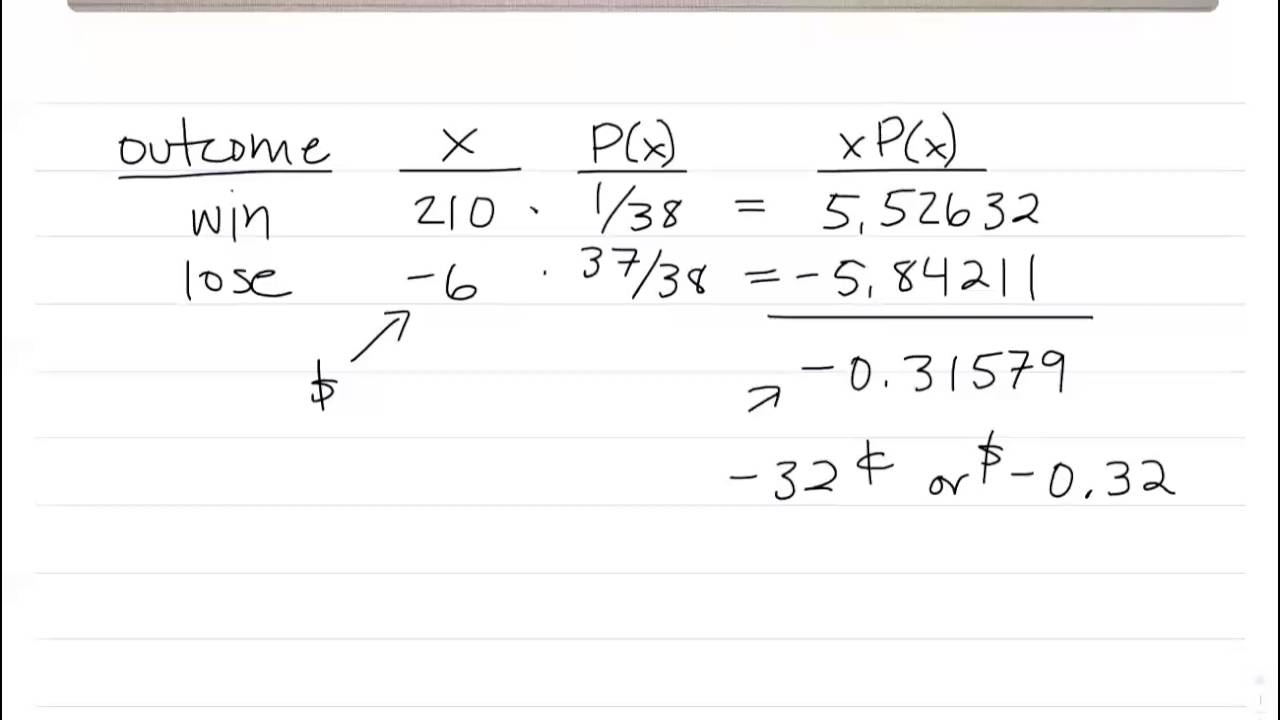 outcome x P(x) xP(x)
win 210 · 1/38 = 5.52632
lose -6 · 37/38 = -5.84211
$ -0.31579
-32¢ or $-0.32